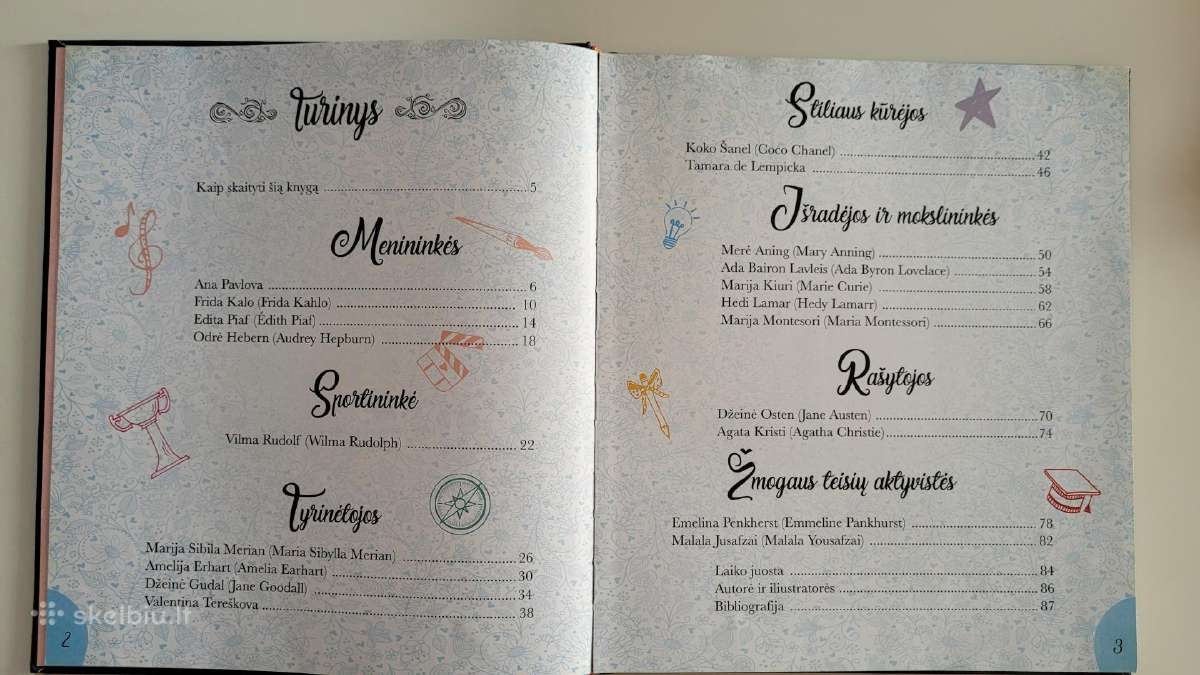 Turinys
Kaip skaityti šią knygą ........ 5
Menininkės
Ana Pavlova ........ 6
Frida Kalo (Frida Kahlo) ........ 10
Edita Piaf (Édith Piaf) ........ 14
Odrė Hebern (Audrey Hepburn) ........ 18
Sportininkė
Vilma Rudolf (Wilma Rudolph) ........ 22
Tyrinėtojos
Marija Sibila Merian (Maria Sibylla Merian) ........ 26
Amelija Erhart (Amelia Earhart) ........ 30
Džeinė Gudal (Jane Goodall) ........ 34
Valentina Tereškova ........ 38
skelbiu.lt
2
Stiliaus kūrėjos
Koko Šanel (Coco Chanel) ........ 42
Tamara de Lempicka ........ 46
Išradėjos ir mokslininkės
Merė Aning (Mary Anning) ........ 50
Ada Bairon Lavleis (Ada Byron Lovelace) ........ 54
Marija Kiuri (Marie Curie) ........ 58
Hedi Lamar (Hedy Lamarr) ........ 62
Marija Montesori (Maria Montessori) ........ 66
Rašytojos
Džeinė Osten (Jane Austen) ........ 70
Agata Kristi (Agatha Christie) ........ 74
Žmogaus teisių aktyvistės
Emelina Penkherst (Emmeline Pankhurst) ........ 78
Malala Jusafzai (Malala Yousafzai) ........ 82
Laiko juosta ........ 84
Autorė ir iliustratorės ........ 86
Bibliografija ........ 87
3